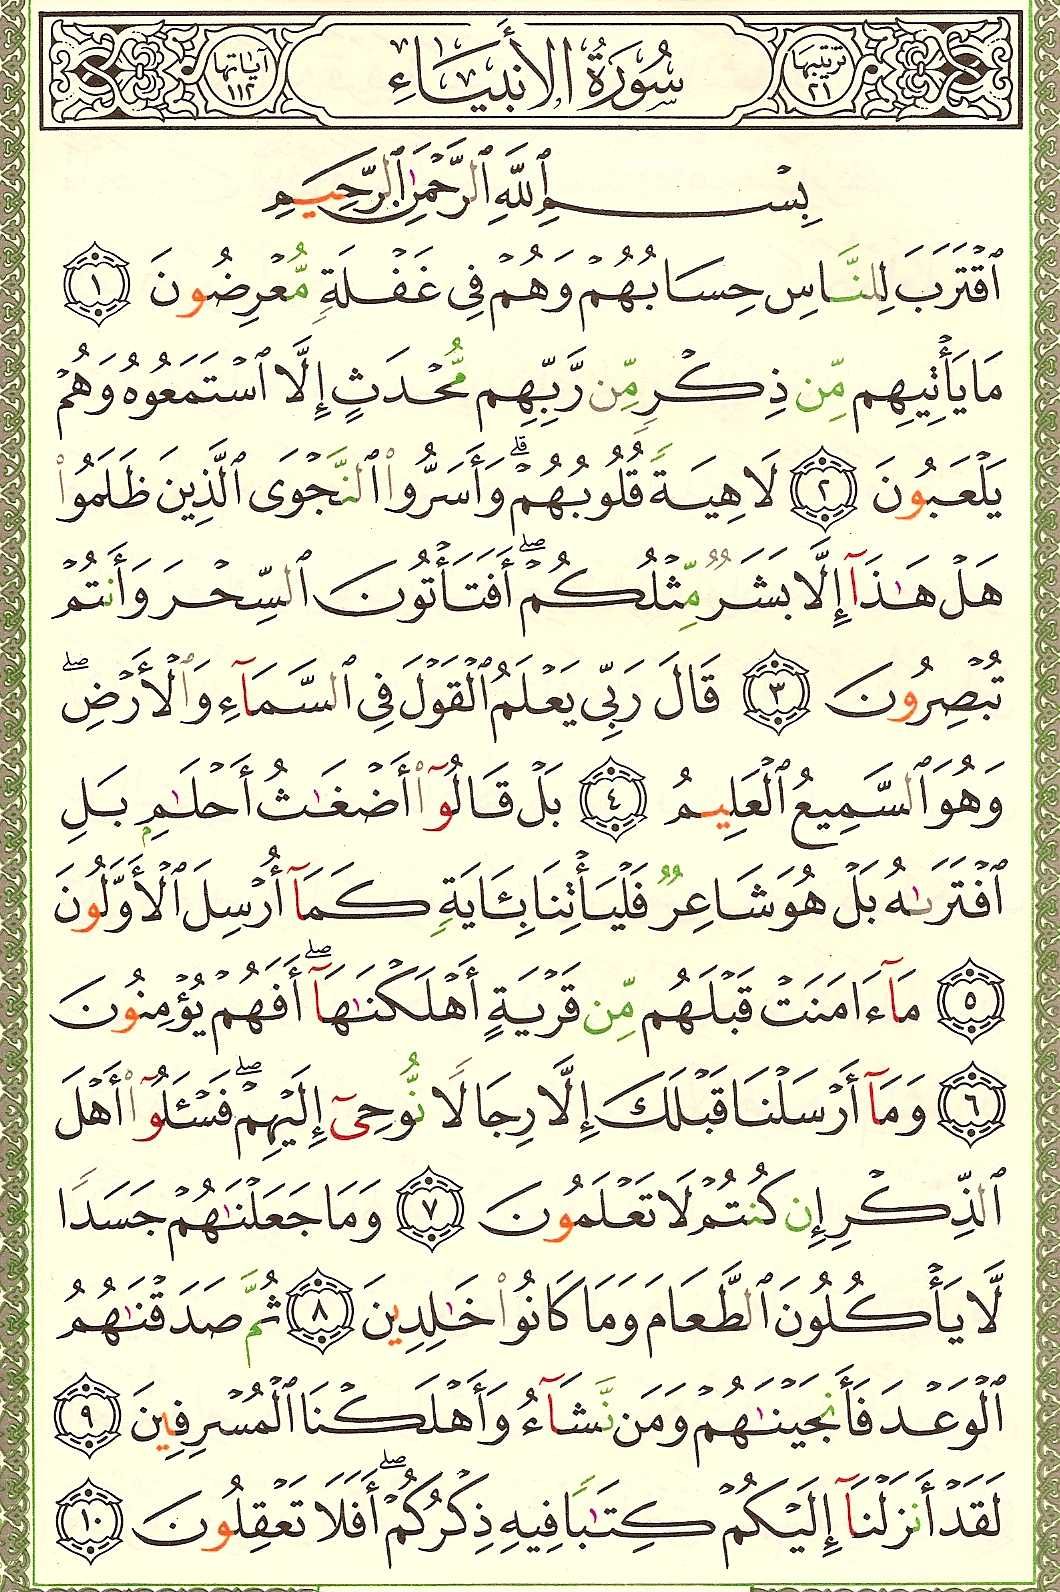 ترتيبها ٢١ سُورَةُ الأَنبِيَاءِ آيَاتها ١١٢
بِسْمِ ٱللَّهِ ٱلرَّحْمَٰنِ ٱلرَّحِيمِ
ٱقْتَرَبَ لِلنَّاسِ حِسَابُهُمْ وَهُمْ فِى غَفْلَةٍ مُّعْرِضُونَ ١
مَا يَأْتِيهِم مِّن ذِكْرٍ مِّن رَّبِّهِم مُّحْدَثٍ إِلَّا ٱسْتَمَعُوهُ وَهُمْ
يَلْعَبُونَ ٢ لَاهِيَةً قُلُوبُهُمْ ۗ وَأَسَرُّوا۟ ٱلنَّجْوَى ٱلَّذِينَ ظَلَمُوا۟
هَلْ هَٰذَآ إِلَّا بَشَرٌ مِّثْلُكُمْ ۖ أَفَتَأْتُونَ ٱلسِّحْرَ وَأَنتُمْ
تُبْصِرُونَ ٣ قَالَ رَبِّى يَعْلَمُ ٱلْقَوْلَ فِى ٱلسَّمَآءِ وَٱلْأَرْضِ ۖ
وَهُوَ ٱلسَّمِيعُ ٱلْعَلِيمُ ٤ بَلْ قَالُوٓا۟ أَضْغَٰثُ أَحْلَٰمٍۭ بَلِ
ٱفْتَرَىٰهُ بَلْ هُوَ شَاعِرٌ فَلْيَأْتِنَا بِـَٔايَةٍ كَمَآ أُرْسِلَ ٱلْأَوَّلُونَ
٥ مَآ ءَامَنَتْ قَبْلَهُم مِّن قَرْيَةٍ أَهْلَكْنَٰهَآ ۖ أَفَهُمْ يُؤْمِنُونَ
٦ وَمَآ أَرْسَلْنَا قَبْلَكَ إِلَّا رِجَالًا نُّوحِىٓ إِلَيْهِمْ ۖ فَسْـَٔلُوٓا۟ أَهْلَ
ٱلذِّكْرِ إِن كُنتُمْ لَا تَعْلَمُونَ ٧ وَمَا جَعَلْنَٰهُمْ جَسَدًا
لَّا يَأْكُلُونَ ٱلطَّعَامَ وَمَا كَانُوا۟ خَٰلِدِينَ ٨ ثُمَّ صَدَقْنَٰهُمُ
ٱلْوَعْدَ فَأَنجَيْنَٰهُمْ وَمَن نَّشَآءُ وَأَهْلَكْنَا ٱلْمُسْرِفِينَ ٩
لَقَدْ أَنزَلْنَآ إِلَيْكُمْ كِتَٰبًا فِيهِ ذِكْرُكُمْ ۖ أَفَلَا تَعْقِلُونَ ١٠